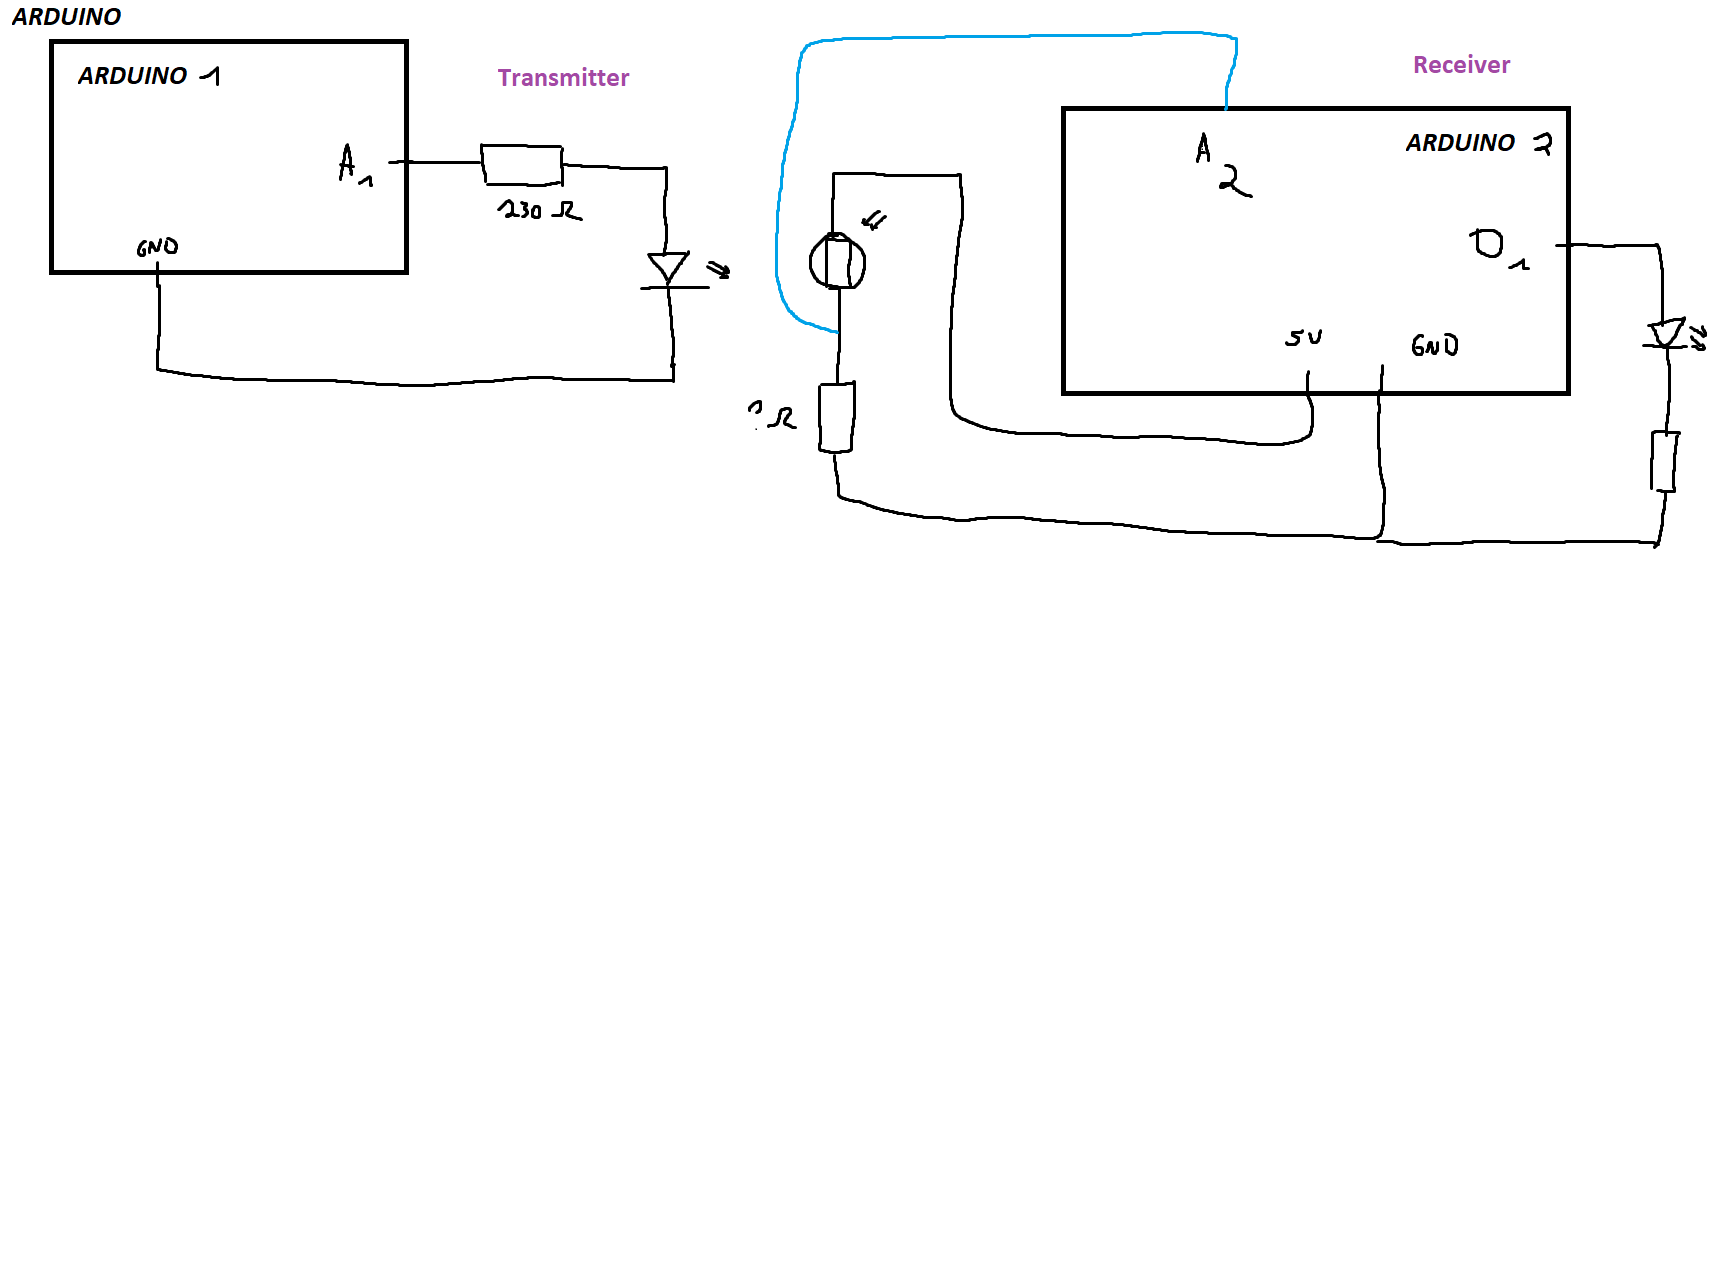 ARDUINO
ARDUINO 1
Transmitter
A1
230 Ω
GND
Receiver
ARDUINO 2
A2
D1
5V
GND
? Ω